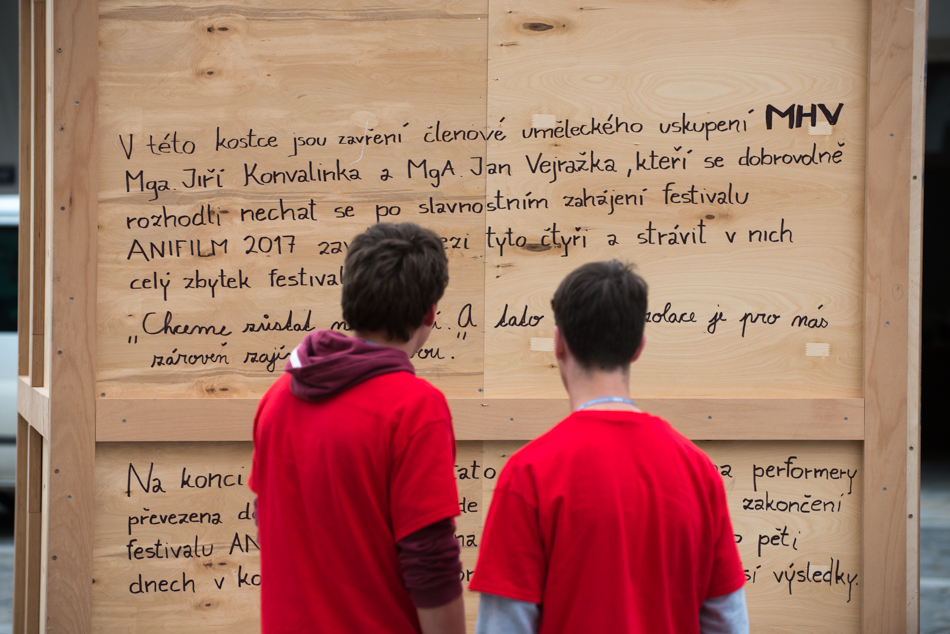 V této kostce jsou zavření členové uměleckého uskupení MHV
Mga. Jiří Konvalinka a MgA. Jan Vejražka, kteří se dobrovolně
rozhodli nechat se po slavnostním zahájení festivalu
ANIFILM 2017 tyto čtyři a strávit v nich
celý zbytek
"Chceme zůstat A tato je pro nás
zároveň
Na konci performery
převezena zakončení
festivalu pěti
dnech v výsledky.